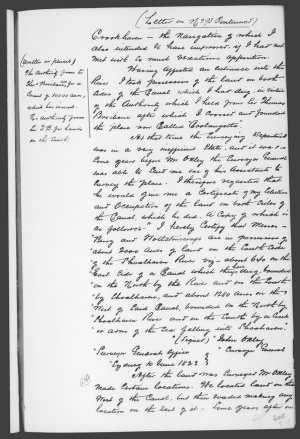 (Letter on N° 93 Continued)
Crookhaven - the Navigation of which I
also intended to have improved if I had not
met with so much vexatious opposition.
Having effected an entrance into the
River I took possession of the Land on both
sides of the Canal which I had dug, in virtue
of the Authority which I held from Sir Thomas
Brisbane after which I crossed and founded
the place now called Coolangatta.
At that time the Surveying Department
was in a very inefficient State, and it was
some years before Mr Oxley the Surveyor General
was able to send me one of his Assistants to
Survey the place. I therefore requested that
he would give me a Certificate of my Election
and Occupation of the Land on both sides of
the Canal which he did. A Copy of which is
as follows "I hereby Certify that Messrs
Berry and Wollstonecraft are in possession of
about 2000 acres of Land on the South side
of the Shoalhaven River viz - about 640 on the
East side of a Canal which they dug, bounded
on the North by the River and on the South
by Crookhaven, and about 1280 acres on the
West of said Canal, bounded on the North by
Shoalhaven River and on the South by a Creek
or arm of the sea falling into Shoalhaven"
(Signed) John Oxley
"Surveyor Generals Office Surveyor General
"Sydney 10 June 1822
After the Land was Surveyed Mr Oxley
made certain locations. He located Land on the
West of the Canal, but then evaded making any
location on the East of it. Some years after on
(written in pencil)
The Authority from Sir
Thos Brisbane for a
Grant of 10000 acres,
which he issued.
No authority from
Sir T.B. for lands
on the South.